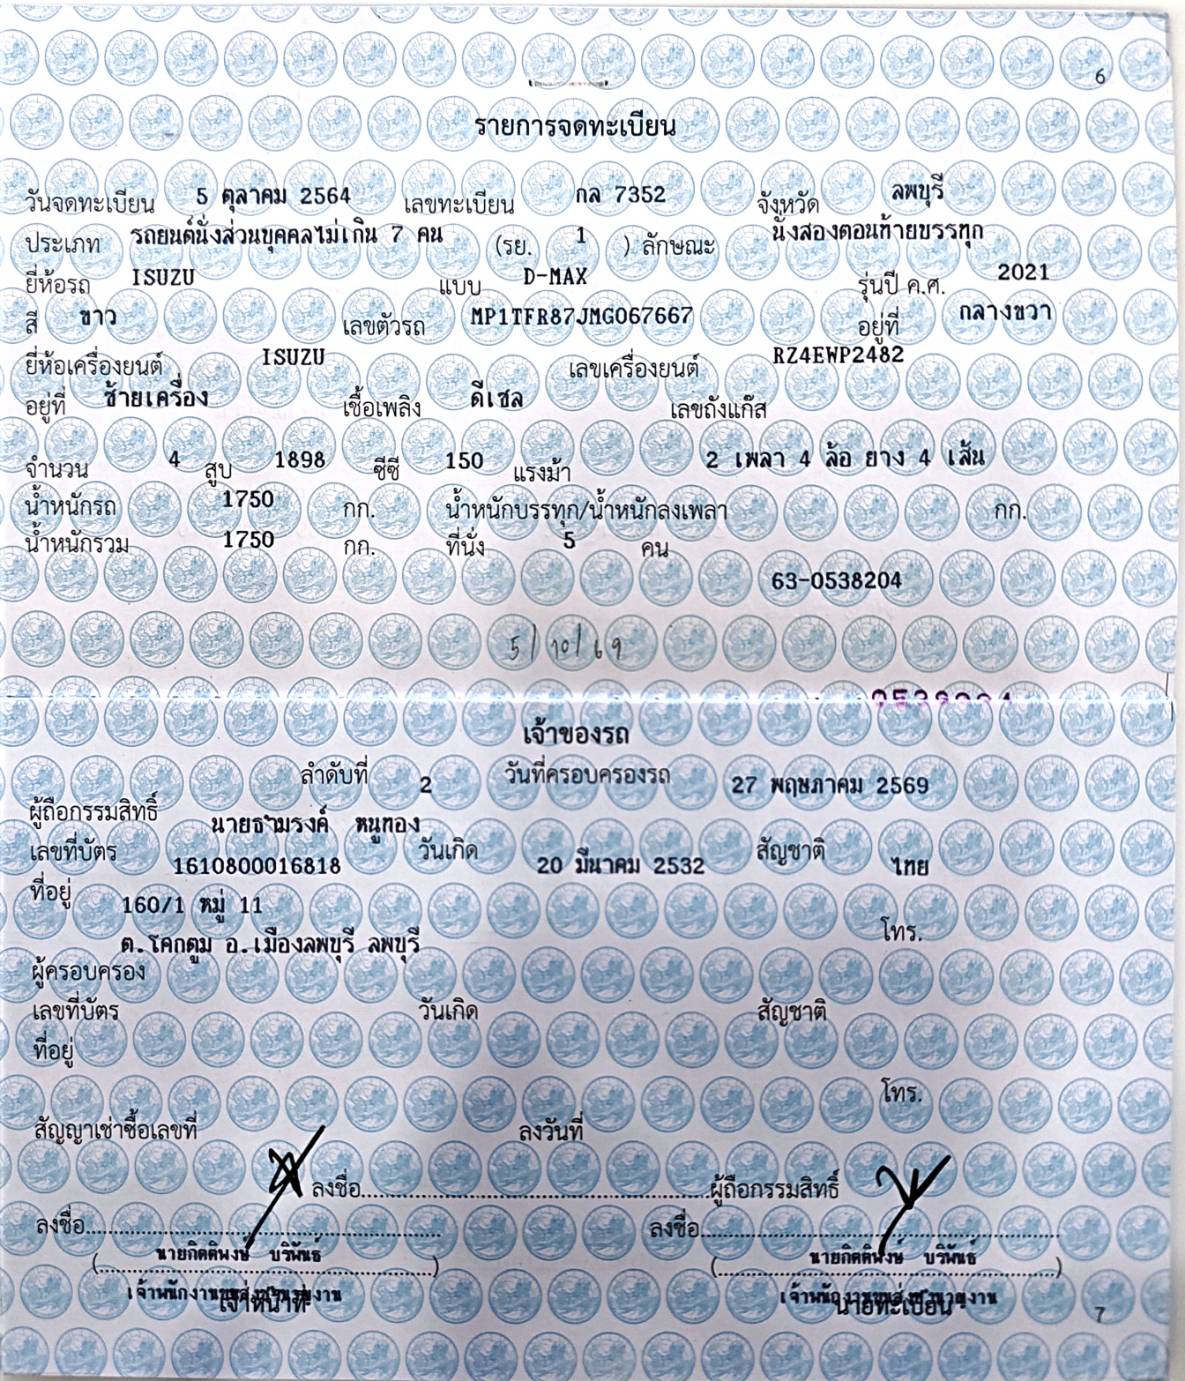 6
รายการจดทะเบียน
วันจดทะเบียน 5 ตุลาคม 2564 เลขทะเบียน กล 7352 จังหวัด ลพบุรี
ประเภท รถยนต์นั่งส่วนบุคคลไม่เกิน 7 คน (รย. 1 ) ลักษณะ นั่งสองตอนท้ายบรรทุก
ยี่ห้อรถ ISUZU แบบ D-MAX รุ่นปี ค.ศ. 2021
สี ขาว เลขตัวรถ MP1TFR87JMG067667 อยู่ที่ กลางขวา
ยี่ห้อเครื่องยนต์ ISUZU เลขเครื่องยนต์ RZ4EWP2482
อยู่ที่ ซ้ายเครื่อง เชื้อเพลิง ดีเซล เลขถังแก๊ส
จำนวน 4 สูบ 1898 ซีซี 150 แรงม้า 2 เพลา 4 ล้อ ยาง 4 เส้น
น้ำหนักรถ 1750 กก. น้ำหนักบรรทุก/น้ำหนักลงเพลา กก.
น้ำหนักรวม 1750 กก. ที่นั่ง 5 คน
63-0538204
5/10/69
เจ้าของรถ
ลำดับที่ 2 วันที่ครอบครองรถ 27 พฤษภาคม 2569
ผู้ถือกรรมสิทธิ์ หนูทอง
เลขที่บัตร 1610800016818 วันเกิด 20 มีนาคม 2532 สัญชาติ ไทย
ที่อยู่ 160/1 หมู่ 11
ต.โคกตูม อ.เมืองลพบุรี ลพบุรี โทร.
ผู้ครอบครอง
เลขที่บัตร วันเกิด สัญชาติ
ที่อยู่
โทร.
สัญญาเช่าซื้อเลขที่ ลงวันที่
ลงชื่อ ผู้ถือกรรมสิทธิ์
ลงชื่อ ลงชื่อ
( นายกิตติพงษ์ บริพันธ์ ) ( นายกิตติพงษ์ บริพันธ์ )
เจ้าพนักงานขนส่งชำนาญงาน เจ้าพนักงานขนส่งชำนาญงาน
เจ้าหน้าที่ นายทะเบียน
7